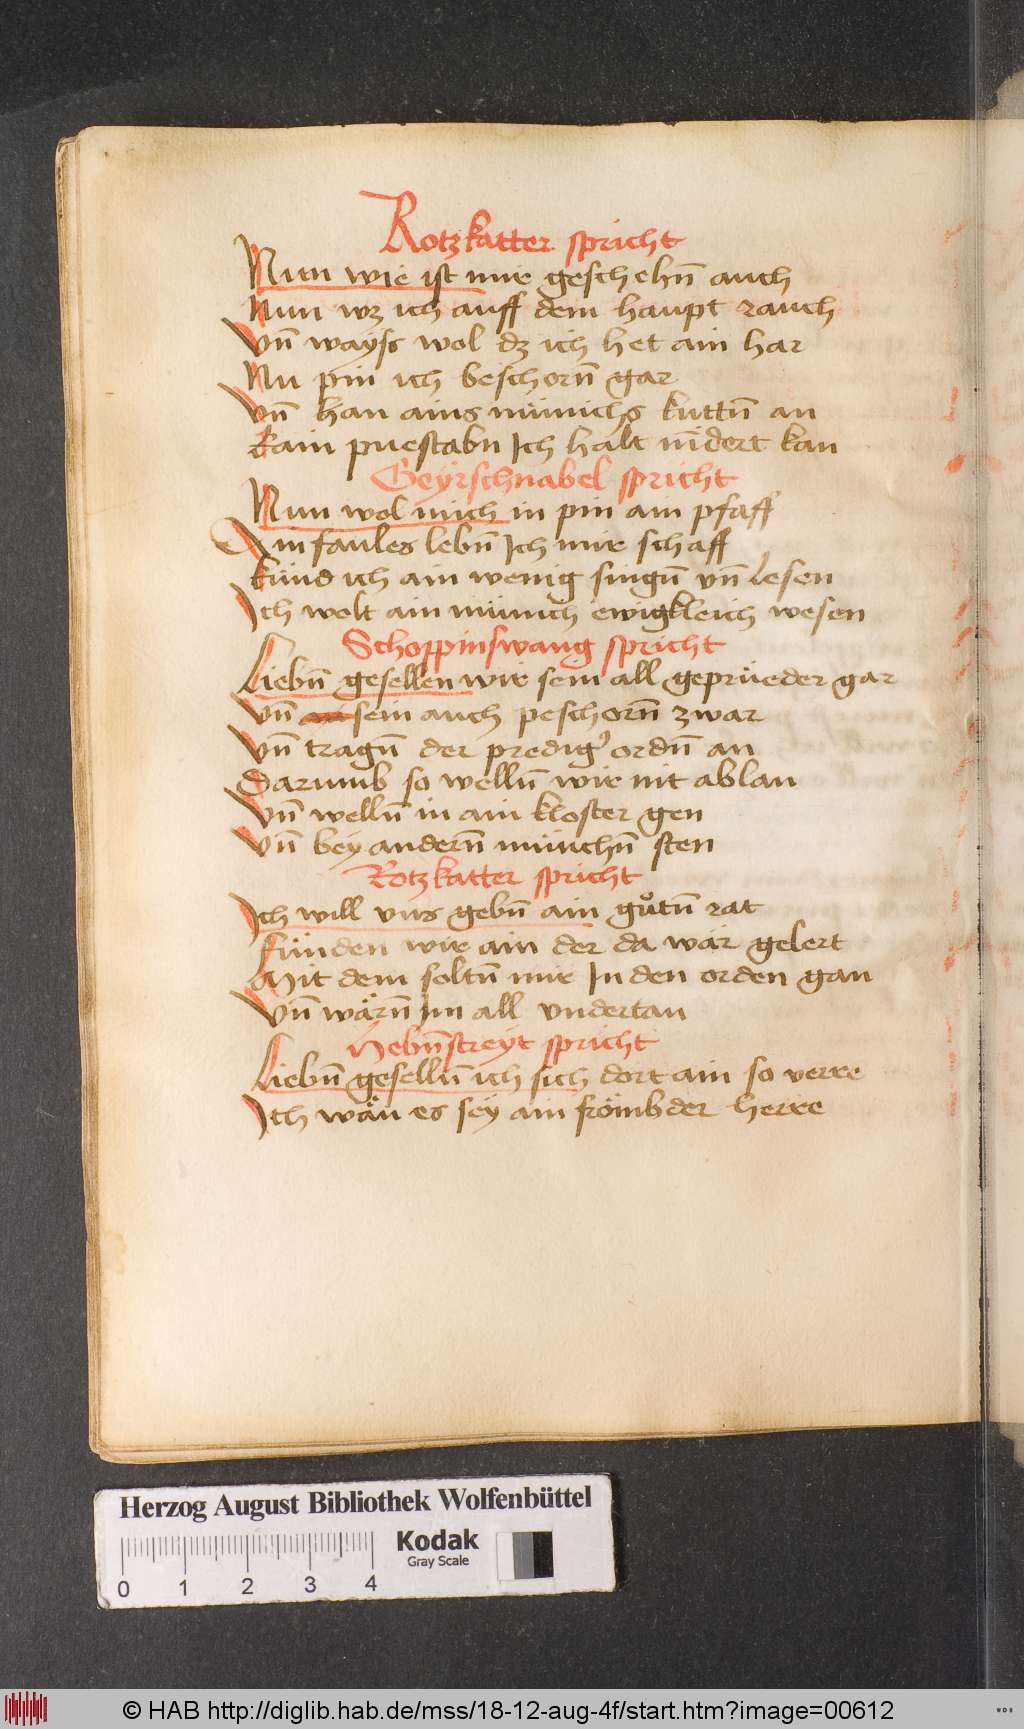 Rotzkatter spricht
Nun wie ist mir geschehn̄ auch
Nun wz ich auff dem haupt rauch
Vn̄ wayss wol dz ich het ain har
Nu pin ich beschorn̄ gar
Vn̄ han ains münichs kuttn̄ an
Kain puestabn Ich halt nidert kan
Geyrschnabel spricht
Nun wol mich in pin ain pfaff
Ain faules lebn̄ Ich mir schaff
Künd ich ain wenig singn̄ vn̄ lesen
Ich wolt ain münich ewigkleich wesen
Schoppinswang spricht
Liebn̄ gesellen wir sein all geprüeder gar
Vn̄ sein auch peschorn̄ zwar
Vn̄ tragn̄ der prediger ordn̄ an
Darumb so welln̄ wir nit ablan
Vn̄ welln̄ in ain kloster gen
Vn̄ bey andern̄ münchn̄ sten
Rotzkatter spricht
Ich will vns gebn̄ ain gůtn̄ rat
Fünden wir ain der da wär gelert
Mit dem soltn̄ mir In den orden gan
Vn̄ wärn̄ im all vndertan
Hebn̄streyt spricht
Liebn̄ geselln̄ ich sich dort ain so verre
Ich wän es sey ain frömbder herre
Herzog August Bibliothek Wolfenbüttel
Kodak
Gray Scale
0 1 2 3 4
© HAB http://diglib.hab.de/mss/18-12-aug-4f/start.htm?image=00612